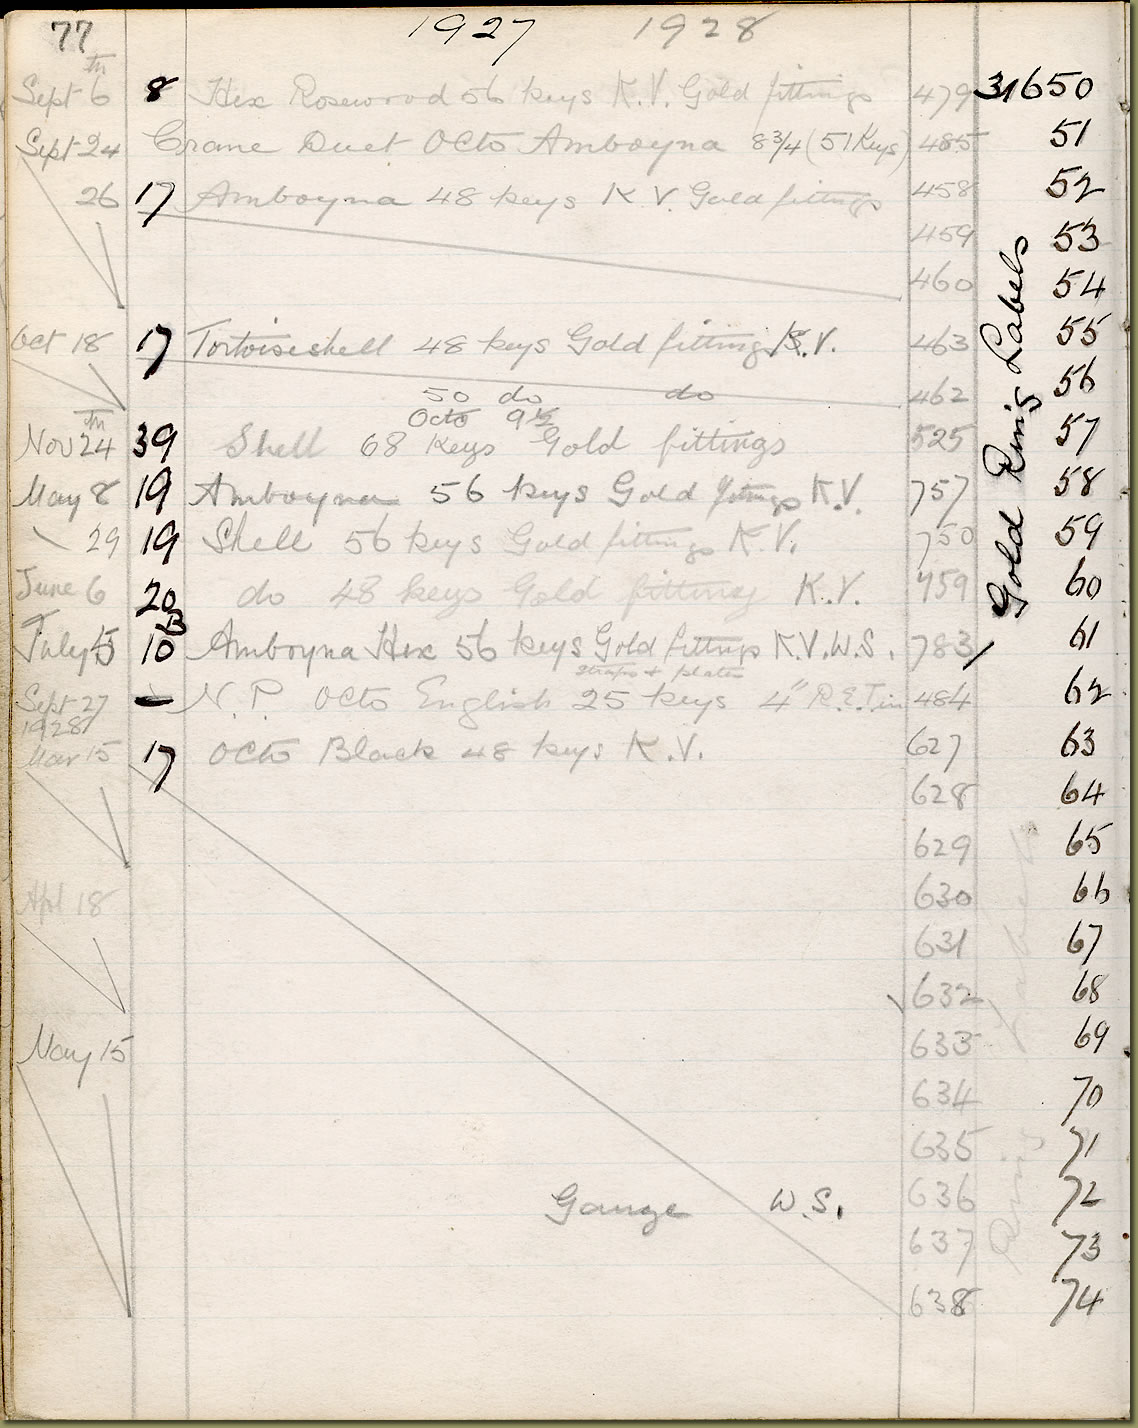 77 1927 1928
Sept 6th 8 Hex Rosewood 56 keys K.V. Gold fittings 479 31650
Sept 24 Crane Duet Octo Amboyna 8 3/4 (51 Keys) 485 51
26 17 Amboyna 48 keys K V. Gold fittings 458 52
459 53
460 54
Oct 18 17 Tortoiseshell 48 keys Gold fittings K.V. 463 55
50 do do 462 56
Octo 9½
Nov 24th 39 Shell 68 Keys Gold fittings 525 57
May 8 19 Amboyna 56 keys Gold fittings K.V. 757 58
29 19 Shell 56 keys Gold fittings K.V. 750 59
June 6 20 do 48 keys Gold fittings K.V. 759 60
July 5 10 B Amboyna Hex 56 keys Gold fittings K.V. W.S. 783 61
straps & plates
Sept 27 — N.P. Octo English 25 keys 4" R.E. Tin 484 62
1928
Mar 15 17 Octo Black 48 keys K.V. 627 63
628 64
629 65
Apl 18 630 66
631 67
632 68
May 15 633 69
634 70
635 71
Gauze W.S. 636 72
637 73
638 74
Gold Ring Labels